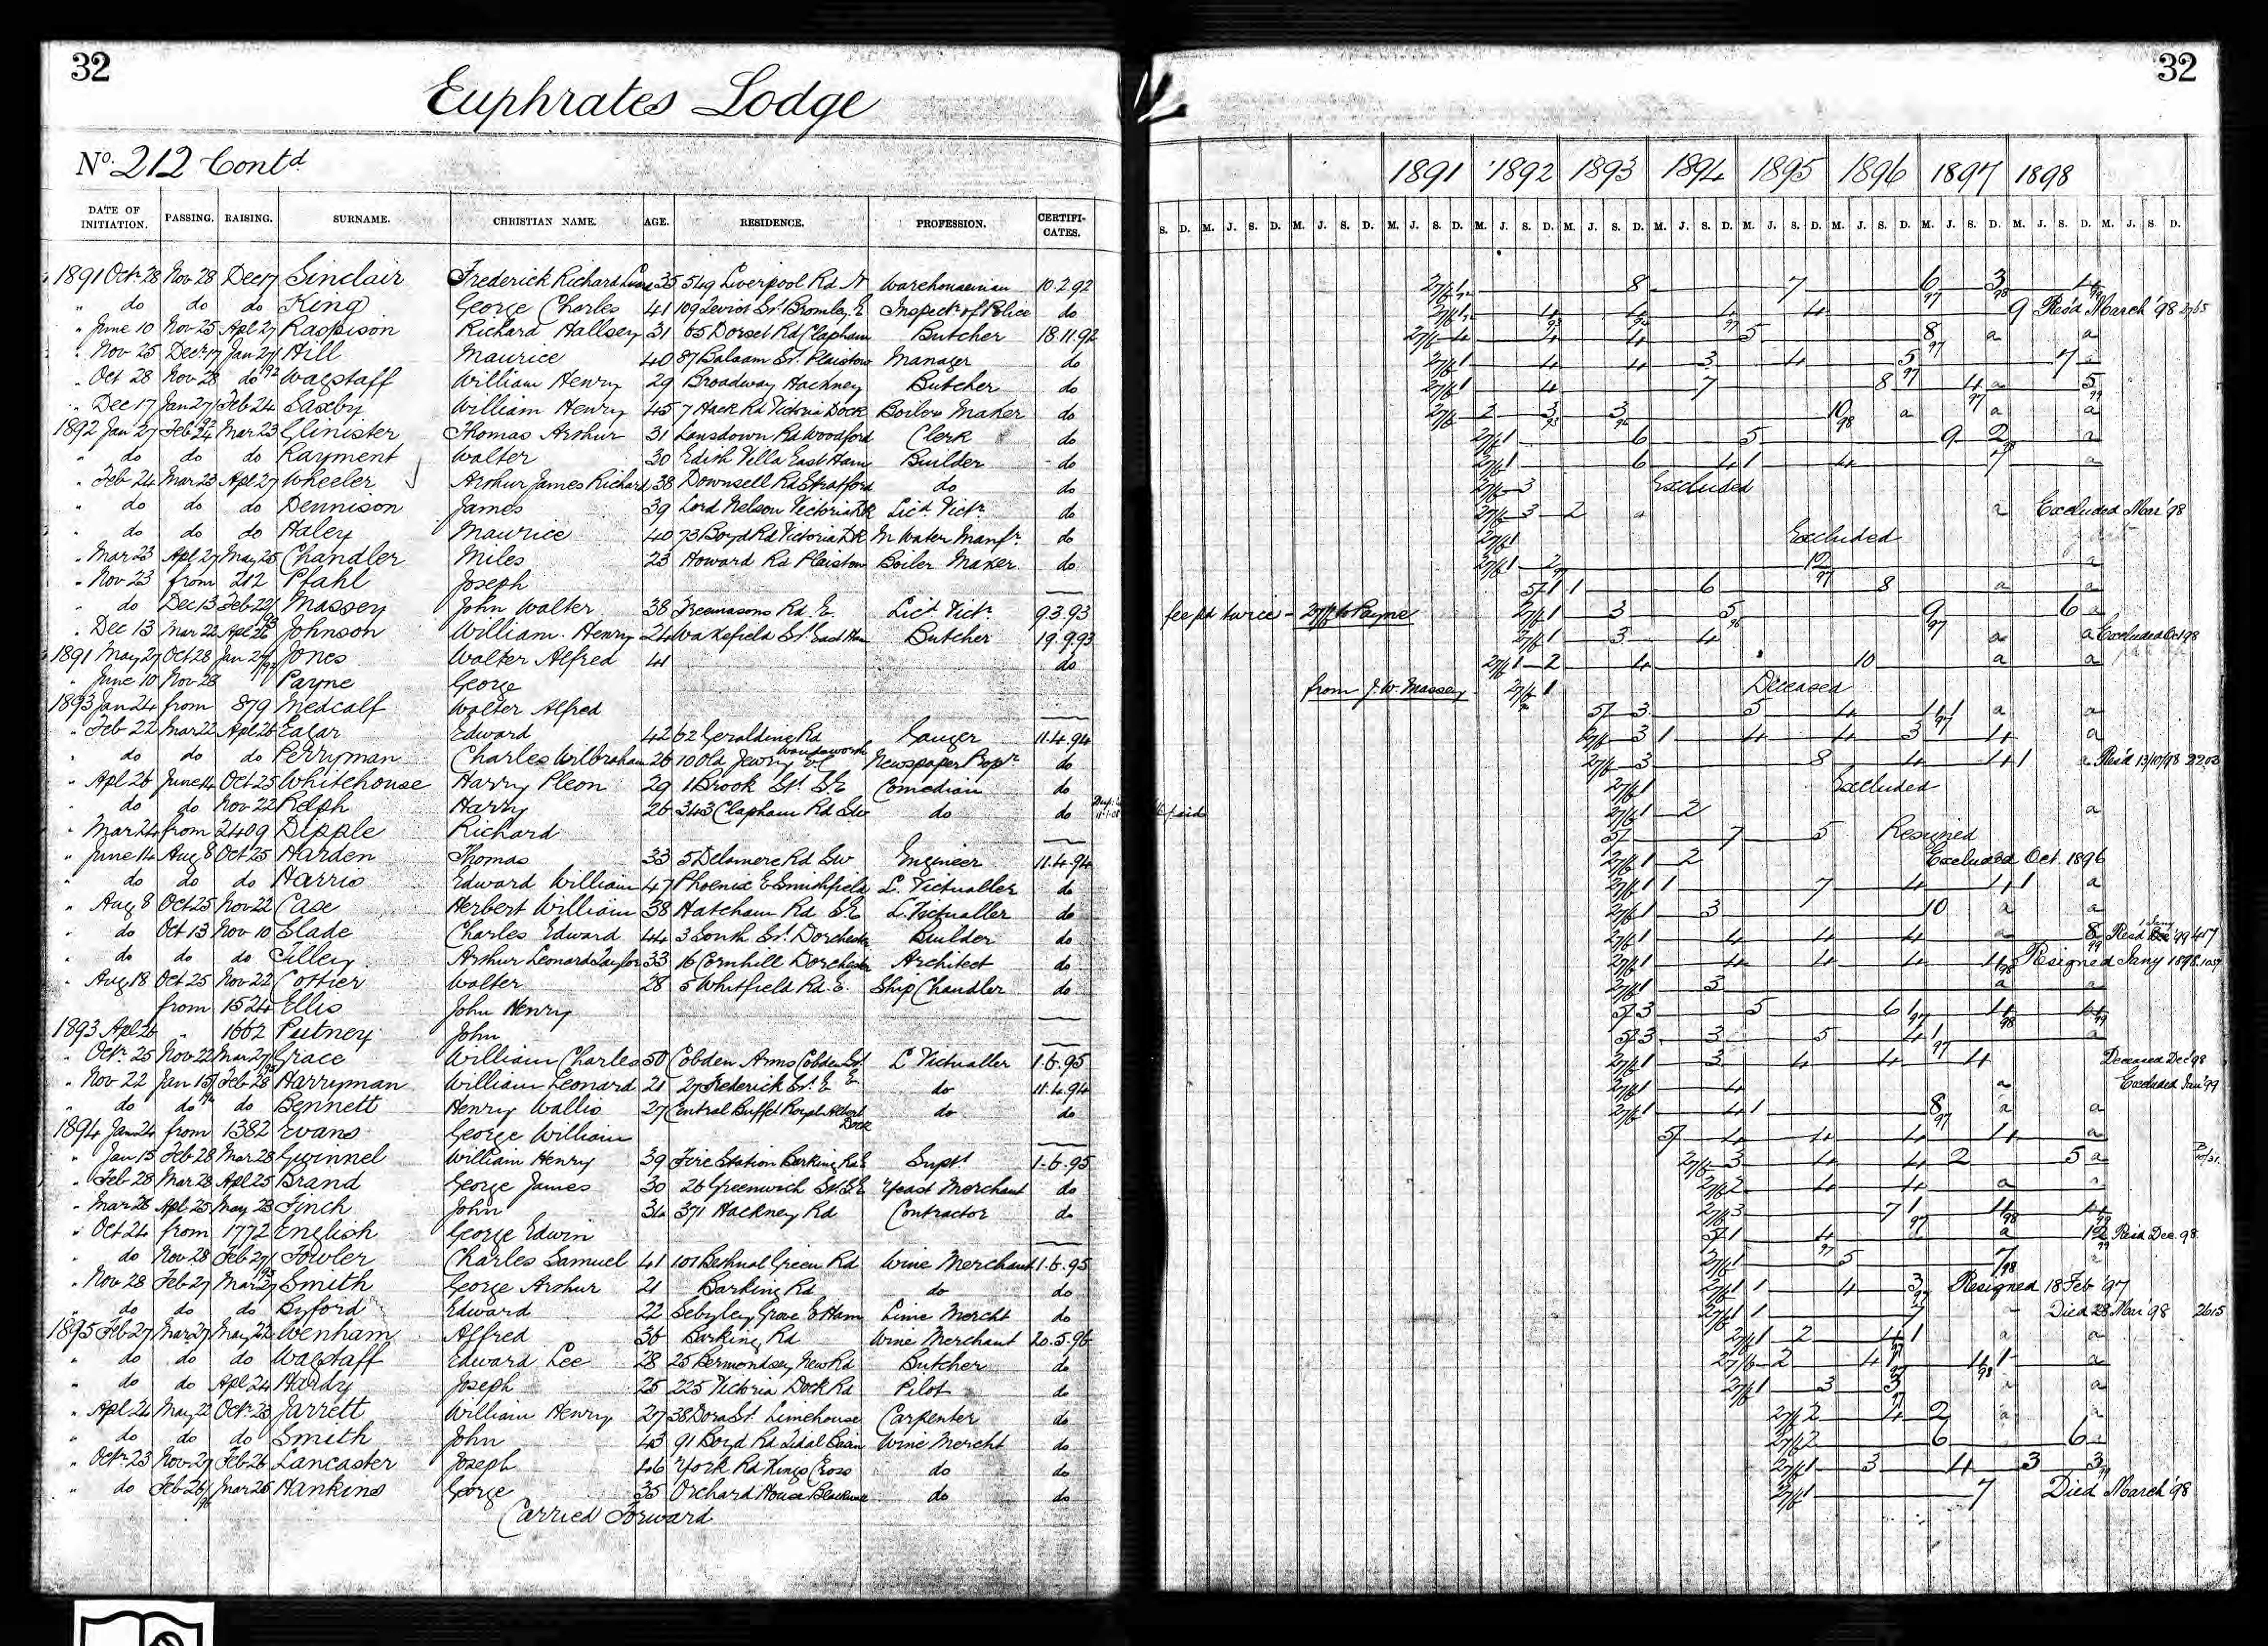 32
Euphrates Lodge
No. 212 Contd
DATE OF INITIATION. PASSING. RAISING. SURNAME. CHRISTIAN NAME. AGE. RESIDENCE. PROFESSION. CERTIFI-CATES.
1891 Octr 28 Nov 28 Dec 17 Sinclair Frederick Richard 35 549 Liverpool Rd N Warehouseman 10.2.92
" do do do King George Charles 41 109 Leviot St Bromley E Inspectr of Police do
" June 10 Nov 25 Apl 27 Rappison Richard Hallsey 31 65 Dorset Rd Clapham Butcher 18.11.92
" Nov 25 Decr 17 Jan 27/92 Hill Maurice 40 87 Balaam St Plaistow Manager do
" Oct 28 Nov 28 do Wagstaff William Henry 29 Broadway Hackney Butcher do
" Dec 17 Jan 27/92 Feb 24 Saxby William Henry 45 7 Hack Rd Victoria Dock Boiler Maker do
1892 Jan 27 Feb 24 Mar 23 Glinister Thomas Arthur 31 Lansdown Rd Woodford Clerk do
" do do do Rayment Walter 30 Edith Villa East Ham Builder do
" Feb 24 Mar 23 Apl 27 Wheeler Arthur James Richard 38 Downsell Rd Stratford do do
" do do do Dennison James 39 Lord Nelson Victoria Dk Licd Victr do
" do do do Haley Maurice 40 73 Boyd Rd Victoria Dk M Water Manfr do
" Mar 23 Apl 27 May 25 Chandler Miles 23 Howard Rd Plaistow Boiler Maker do
" Nov 23 from 212 Pfahl Joseph
" do Dec 13 Feb 22/93 Massey John Walter 38 Freemasons Rd E. Licd Victr 9.3.93
" Dec 13 Mar 22 Apl 26 Johnson William Henry 24 Wakefield St East Ham Butcher 19.9.93
1891 May 27 Oct 28 Jan 27/92 Jones Walter Alfred 41 do
" June 10 Nov 28 Payne George
1893 Jan 24 from 879 Medcalf Walter Alfred
" Feb 22 Mar 22 Apl 26 Eagar Edward 42 62 Geraldine Rd Wandsworth Gauger 11.4.94
" do do do Perryman Charles Wilbraham 26 10 Old Jewry EC Newspaper Propr do
" Apl 26 June 14 Oct 25 Whitehouse Harry Pleon 29 1 Brook St S.E Comedian do
" do do Nov 22 Relph Harry 26 343 Clapham Rd SW do do
" Mar 24 from 2409 Dipple Richard
" June 14 Aug 8 Oct 25 Harden Thomas 33 5 Delamere Rd SW Engineer 11.4.94
" do do do Harris Edward William 47 Phoenix E Smithfield L. Victualler do
" Aug 8 Oct 25 Nov 22 Case Herbert William 38 Hatcham Rd SE L. Victualler do
" do Oct 13 Nov 10 Slade Charles Edward 44 3 South St Dorchester Builder do
" do do do Tilley Arthur Leonard Taylor 33 16 Cornhill Dorchester Architect do
" Aug 18 Oct 25 Nov 22 Cottier Walter 28 5 Whitfield Rd E. Ship Chandler do
from 1524 Ellis John Henry
1893 Apl 26 " 1662 Putney John
" Octr 25 Nov 22 Mar 27/95 Grace William Charles 50 Cobden Arms Cobden St E L Victualler 1.6.95
" Nov 22 Jan 15/94 Feb 28 Harryman William Leonard 21 27 Frederick St E do 11.4.94
" do do do Bennett Henry Wallis 27 Central Buffet Royal Albert Dock do do
1894 Jan 24 from 1382 Evans George William
" Jan 15 Feb 28 Mar 28 Gwinnel William Henry 39 Fire Station Barking Rd E Supt 1.6.95
" Feb 28 Mar 28 Apl 25 Brand George James 30 26 Greenwich St S.E Yeast Merchant do
" Mar 28 Apl 25 May 23 Finch John 34 371 Hackney Rd Contractor do
" Oct 24 from 1772 English George Edwin
" do Nov 28 Feb 27/95 Fowler Charles Samuel 41 101 Bethnal Green Rd Wine Merchant 1.6.95
" Nov 28 Feb 27 Mar 27 Smith George Arthur 21 Barking Rd do do
" do do do Byford Edward 22 Sebyley Grove E Ham Lime Mercht do
1895 Feb 27 Mar 27 May 22 Wenham Alfred 36 Barking Rd Wine Merchant 20.5.96
" do do do Wagstaff Edward Lee 28 25 Bermondsey New Rd Butcher do
" do do Apl 24 Hardy Joseph 25 225 Victoria Dock Rd Pilot do
" Apl 24 May 22 Octr 23 Jarrett William Henry 27 38 Dora St Limehouse Carpenter do
" do do do Smith John 43 91 Boyd Rd Tidal Basin Wine Mercht do
" Octr 23 Nov 27 Feb 26 Lancaster Joseph 46 York Rd Kings Cross do do
" do Feb 26/96 Mar 25 Hankins George 35 Orchard House Blackwall do do
Carried Forward
32
1891 1892 1893 1894 1895 1896 1897 1898
S. D. M. J. S. D. M. J. S. D. M. J. S. D. M. J. S. D. M. J. S. D. M. J. S. D. M. J. S. D. M. J. S. D. M. J. S. D. M. J. S. D. M. J. S. D.
27/6 1 8 7 6 97 3 98 4 99
27/6 1 4 4 4 4 9 Resd March '98 2765
27/6 4 4 4 5 8 97 a a
27/6 1 4 4 3 4 5 97 7 a
27/6 1 4 7 8 4 97 a 5 99
27/6 2 3 3 10 98 a a a
27/6 1 6 5 9 2 a
27/6 1 6 4 1 4 7 a
27/6 3 Excluded
27/6 3 2 a a Excluded Mar '98
27/6 1 Excluded
27/6 1 2 12 97 a
5/- 1 1 6 8 a a
fee pd twice - 27/6 to Payne 27/6 1 3 5 96 9 97 6 a
27/6 1 3 4 a a Excluded Oct 98
27/6 1 2 4 10 a a
from J. W. Massey 27/6 1 Deceased
5/- 3 5 4 4 1 97 a a
27/6 3 1 4 4 3 4 a
27/6 3 8 4 4 1 a Resd 13/10/98 2203
27/6 1 Excluded
paid 27/6 1 2 a
5/- 7 5 Resigned
27/6 1 2 Excluded Oct. 1896
27/6 1 1 7 4 4 1 a
27/6 1 3 10 a a
27/6 1 4 4 4 a 8 99 Resd 1 Jany '99 457
27/6 1 4 4 4 4 98 Resigned Jany 1898. 1057
27/6 1 3 a a
5/- 3 5 6 1 97 4 98 4 99
5/- 3 3 5 4 1 97 a
27/6 1 3 4 4 4 Deceased Dec '98
27/6 1 4 a Excluded Jan '99
27/6 1 4 1 8 97 a a
5/- 4 4 4 4 a
27/6 3 4 4 2 5 a
27/6 2 4 4 a a
27/6 3 7 1 97 4 98 4 99
5/- 1 4 97 a 12 99 Resd Dec. 98
27/6 1 5 7/98 a
27/6 1 1 4 3 97 Resigned 18 Feb '97
27/6 1 1 7 Died 28 Mar '98 2615
27/6 1 2 4 1 a a
27/6 2 4 1 4 98 1 a
27/6 1 3 3 a a
27/6 2 4 2 a a
27/6 2 6 6 a
27/6 1 3 4 3 3 99
27/6 1 7 Died March '98